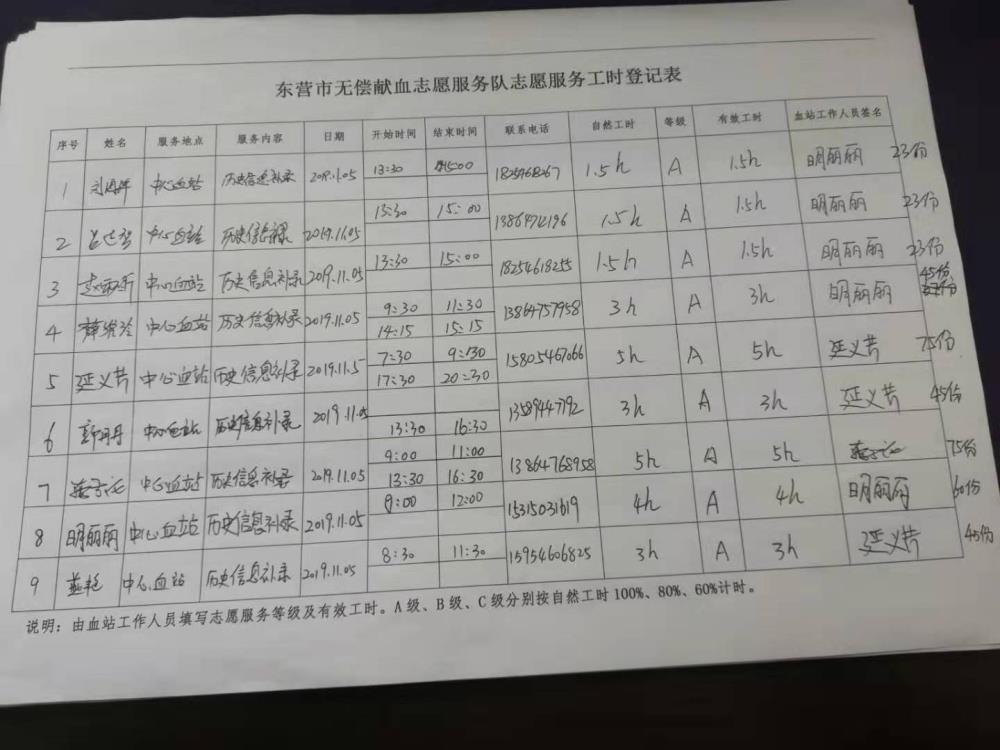 东营市无偿献血志愿服务队志愿服务工时登记表
序号 姓名 服务地点 服务内容 日期 开始时间 结束时间 联系电话 自然工时 等级 有效工时 血站工作人员签名
1 中心血站 历史信息补录 2019.11.05 13:30 15:00 1.5h A 1.5h 明丽丽 23份
2 中心血站 历史信息补录 2019.11.05 13:30 15:00 1.5h A 1.5h 明丽丽 23份
3 中心血站 历史信息补录 2019.11.05 13:30 15:00 18254618255 1.5h A 1.5h 明丽丽 23份
4 中心血站 历史信息补录 2019.11.05 9:30 11:30 13864757958 3h A 3h 明丽丽 45份
14:15 15:15
5 延义芹 中心血站 历史信息补录 2019.11.5 7:30 9:30 15805467066 5h A 5h 延义芹 75份
17:30 20:30
6 中心血站 历史信息补录 2019.11.05 13:30 16:30 13589447792 3h A 3h 延义芹 45份
7 中心血站 历史信息补录 2019.11.05 9:00 11:00 13864768958 5h A 5h 75份
13:30 16:30
8 明丽丽 中心血站 历史信息补录 2019.11.05 8:00 12:00 15315031619 4h A 4h 明丽丽 60份
9 中心血站 历史信息补录 2019.11.05 8:30 11:30 15954606825 3h A 3h 延义芹 45份
说明：由血站工作人员填写志愿服务等级及有效工时。A级、B级、C级分别按自然工时100%、80%、60%计时。